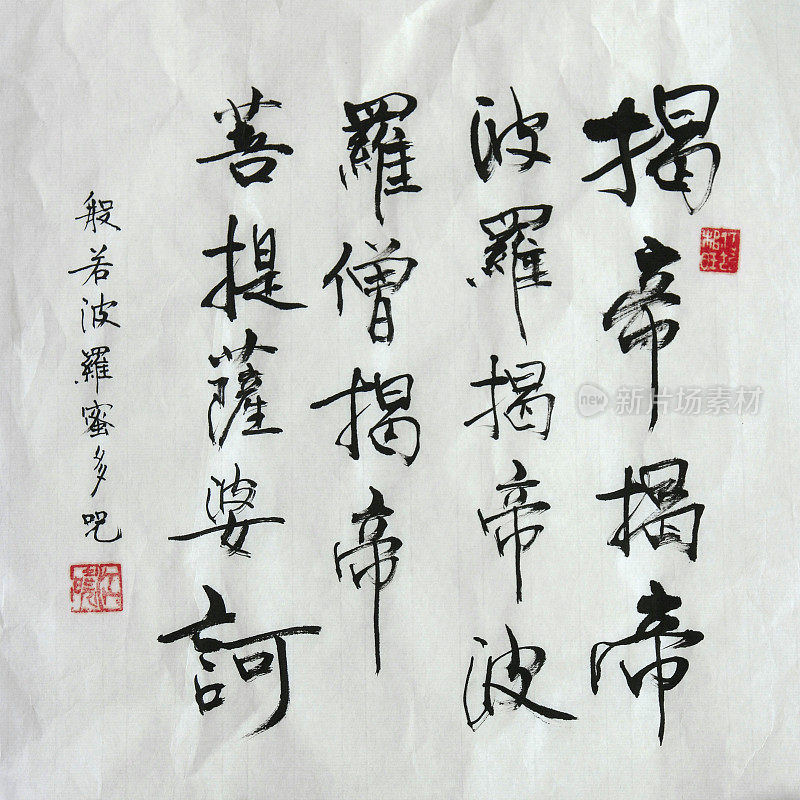 揭帝揭帝
波羅揭帝波
羅僧揭帝
菩提薩婆訶
般若波羅蜜多咒
new 新片场素材